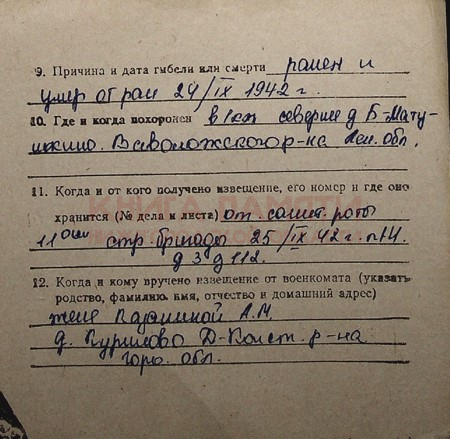 9. Причина и дата гибели или смерти ранен и
умер от ран 24/IX 1942 г.
10. Где и когда похоронен в 1 км севернее д Б-Мату-
шкино. Всеволожского р-на Лен. обл.
КНИГА ПАМЯТИ
11. Когда и от кого получено извещение, его номер и где оно
хранится (№ дела и листа) от. санит. роты
11 стр. бригады 25/IX 42 г. п 14.
д 3 д 112.
12. Когда и кому вручено извещение от военкомата (указать
родство, фамилию, имя, отчество и домашний адрес)
жене А.М.
д. Курилово Д-Конст. р-на
Горь. обл.